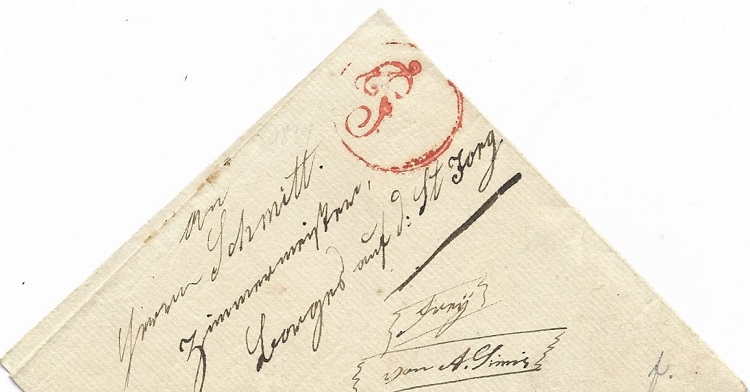 F
An
Herrn Schmitt.
Zimmermeister,
Lorges auf d: St Jorg
frey
von A. Simis